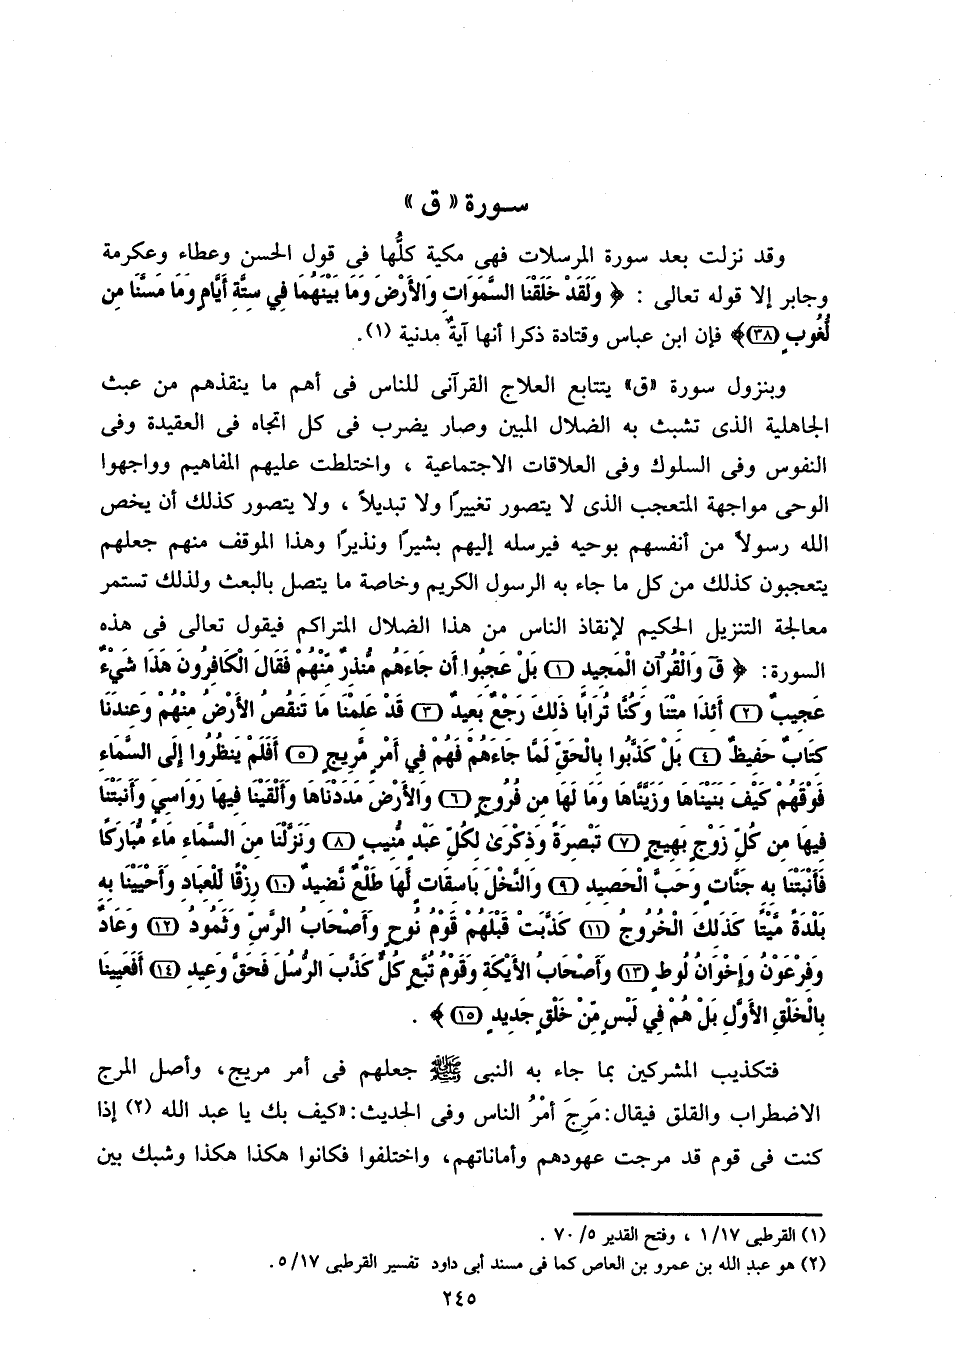 سورة « ق »
وقد نزلت بعد سورة المرسلات فهى مكية كلُّها فى قول الحسن وعطاء وعكرمة
وجابر إلا قوله تعالى : ﴿ وَلَقَدْ خَلَقْنَا السَّمَوَاتِ وَالأَرْضَ وَمَا بَيْنَهُمَا فِي سِتَّةِ أَيَّامٍ وَمَا مَسَّنَا مِن
لُّغُوبٍ (٣٨)﴾ فإن ابن عباس وقتادة ذكرا أنها آيةٌ مدنية (١).
وبنزول سورة «ق» يتتابع العلاج القرآنى للناس فى أهم ما ينقذهم من عبث
الجاهلية الذى تشبث به الضلال المبين وصار يضرب فى كل اتجاه فى العقيدة وفى
النفوس وفى السلوك وفى العلاقات الاجتماعية ، واختلطت عليهم المفاهيم وواجهوا
الوحى مواجهة المتعجب الذى لا يتصور تغييرًا ولا تبديلاً ، ولا يتصور كذلك أن يخص
الله رسولاً من أنفسهم بوحيه فيرسله إليهم بشيرًا ونذيرًا وهذا الموقف منهم جعلهم
يتعجبون كذلك من كل ما جاء به الرسول الكريم وخاصة ما يتصل بالبعث ولذلك تستمر
معالجة التنزيل الحكيم لإنقاذ الناس من هذا الضلال المتراكم فيقول تعالى فى هذه
السورة: ﴿ قٓ وَالْقُرْآنِ الْمَجِيدِ (١) بَلْ عَجِبُوا أَن جَاءَهُم مُّنذِرٌ مِّنْهُمْ فَقَالَ الْكَافِرُونَ هَذَا شَيْءٌ
عَجِيبٌ (٢) أَئِذَا مِتْنَا وَكُنَّا تُرَابًا ذَلِكَ رَجْعٌ بَعِيدٌ (٣) قَدْ عَلِمْنَا مَا تَنقُصُ الأَرْضُ مِنْهُمْ وَعِندَنَا
كِتَابٌ حَفِيظٌ (٤) بَلْ كَذَّبُوا بِالْحَقِّ لَمَّا جَاءَهُمْ فَهُمْ فِي أَمْرٍ مَّرِيجٍ (٥) أَفَلَمْ يَنظُرُوا إِلَى السَّمَاءِ
فَوْقَهُمْ كَيْفَ بَنَيْنَاهَا وَزَيَّنَّاهَا وَمَا لَهَا مِن فُرُوجٍ (٦) وَالأَرْضَ مَدَدْنَاهَا وَأَلْقَيْنَا فِيهَا رَوَاسِيَ وَأَنبَتْنَا
فِيهَا مِن كُلِّ زَوْجٍ بَهِيجٍ (٧) تَبْصِرَةً وَذِكْرَىٰ لِكُلِّ عَبْدٍ مُّنِيبٍ (٨) وَنَزَّلْنَا مِنَ السَّمَاءِ مَاءً مُّبَارَكًا
فَأَنبَتْنَا بِهِ جَنَّاتٍ وَحَبَّ الْحَصِيدِ (٩) وَالنَّخْلَ بَاسِقَاتٍ لَّهَا طَلْعٌ نَّضِيدٌ (١٠) رِزْقًا لِّلْعِبَادِ وَأَحْيَيْنَا بِهِ
بَلْدَةً مَّيْتًا كَذَلِكَ الْخُرُوجُ (١١) كَذَّبَتْ قَبْلَهُمْ قَوْمُ نُوحٍ وَأَصْحَابُ الرَّسِّ وَثَمُودُ (١٢) وَعَادٌ
وَفِرْعَوْنُ وَإِخْوَانُ لُوطٍ (١٣) وَأَصْحَابُ الأَيْكَةِ وَقَوْمُ تُبَّعٍ كُلٌّ كَذَّبَ الرُّسُلَ فَحَقَّ وَعِيدِ (١٤) أَفَعَيِينَا
بِالْخَلْقِ الأَوَّلِ بَلْ هُمْ فِي لَبْسٍ مِّنْ خَلْقٍ جَدِيدٍ (١٥) ﴾ .
فتكذيب المشركين بما جاء به النبى ﷺ جعلهم فى أمر مريج، وأصل المرج
الاضطراب والقلق فيقال: مَرِجَ أمْرُ الناس وفى الحديث: «كيف بك يا عبد الله (٢) إذا
كنت فى قوم قد مرجت عهودهم وأماناتهم، واختلفوا فكانوا هكذا هكذا وشبك بين
(١) القرطبى ١/١٧ ، وفتح القدير ٧٠/٥ .
(٢) هو عبد الله بن عمرو بن العاص كما فى مسند أبى داود تفسير القرطبى ٥/١٧.
٢٤٥